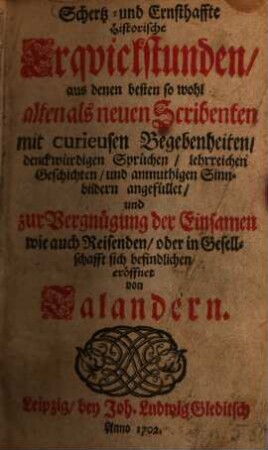 Schertz-und Ernsthaffte
Historische
Erqvickstunden/
aus denen besten so wohl
alten als neuen Scribenten
mit curieusen Begebenheiten/
denckwürdigen Sprüchen/ lehrreichen
Geschichten/ und anmuthigen Sinn-
bildern angefüllet/
und
zur Vergnügung der Einsamen
wie auch Reisenden/ oder in Gesell-
schafft sich befindlichen/
eröffnet
von
Talandern.
Leipzig/ bey Joh. Ludwig Gleditsch
Anno 1702.